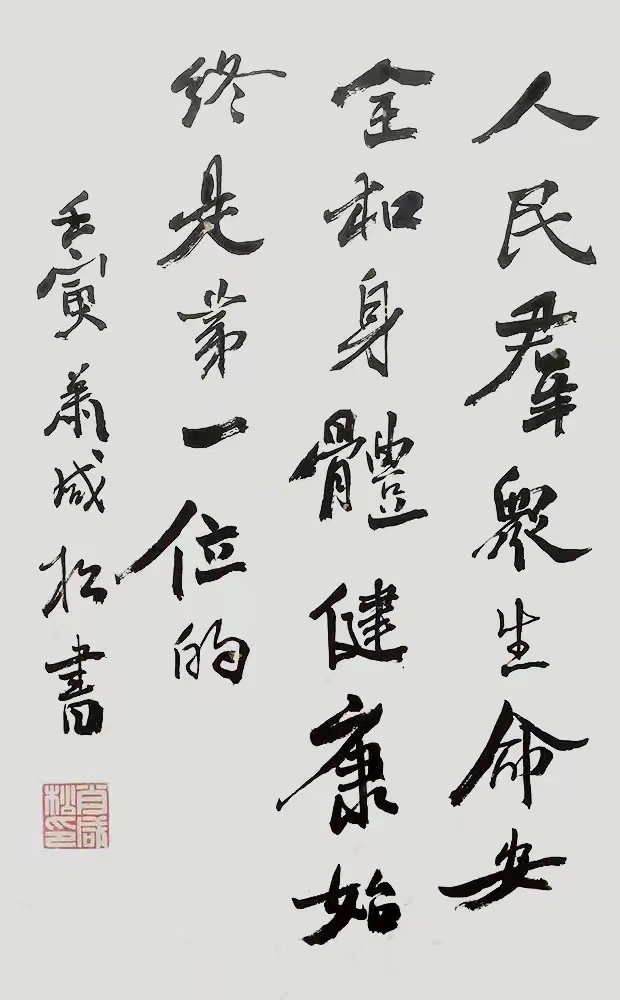 人民羣眾生命安
全和身體健康始
終是第一位的
壬寅 蕭成松書